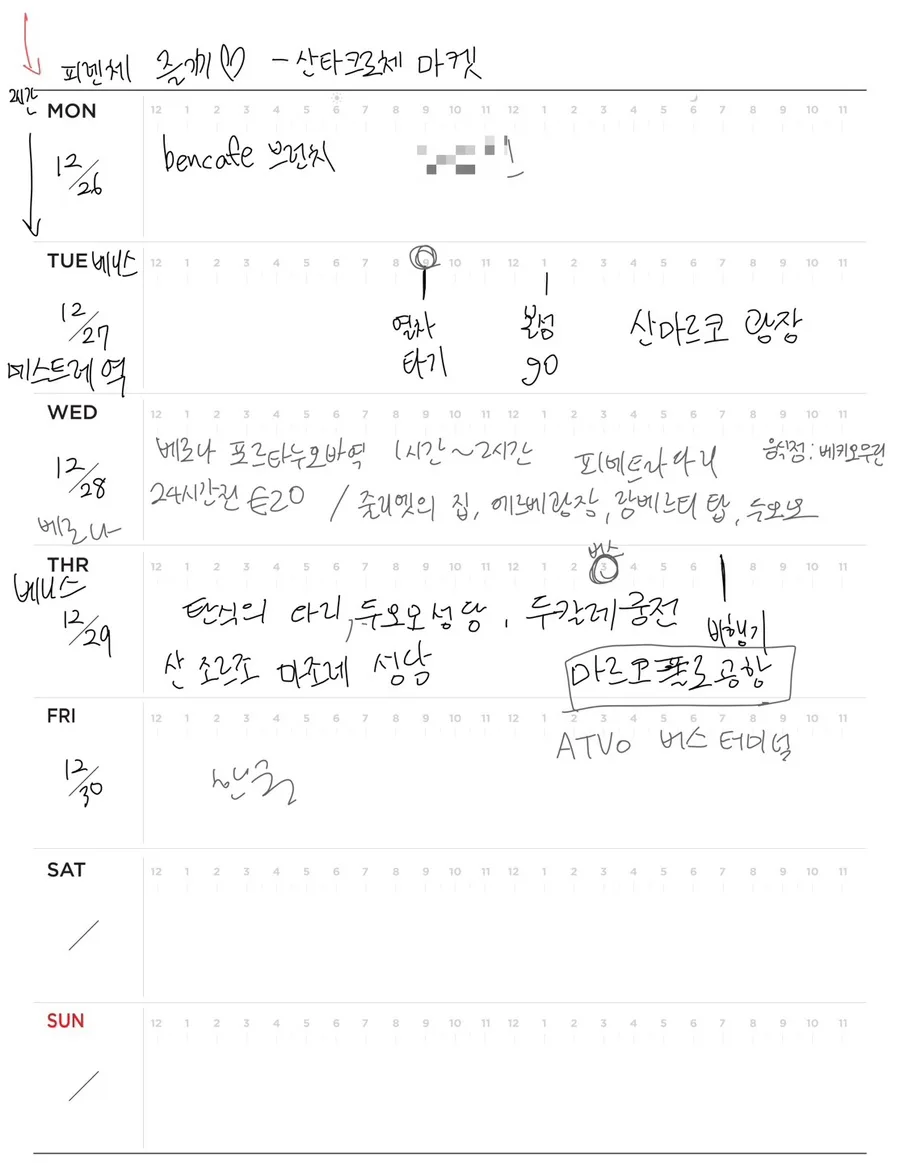 피렌체 즐기기♡ -산타크로체 마켓
2시간
MON 12 1 2 3 4 5 6 7 8 9 10 11 12 1 2 3 4 5 6 7 8 9 10 11
12/26 bencafe 브런치
TUE 베니스 12 1 2 3 4 5 6 7 8 9 10 11 12 1 2 3 4 5 6 7 8 9 10 11
12/27 열차 본섬 산마르코 광장
메스트레 역 타기 go
WED 12 1 2 3 4 5 6 7 8 9 10 11 12 1 2 3 4 5 6 7 8 9 10 11
베로나 포르타누오바역 1시간~2시간 피에트라다리 음식점: 베키오우륀
12/28 24시간권 €20 / 줄리엣의 집, 에르베광장, 람베르티 탑, 두오모
베로나
버스
THR 12 1 2 3 4 5 6 7 8 9 10 11 12 1 2 3 4 5 6 7 8 9 10 11
베니스
12/29 탄식의 다리, 두오모성당, 두칼레궁전 비행기
산 조르조 마조레 성당 마르코폴로공항
FRI 12 1 2 3 4 5 6 7 8 9 10 11 12 1 2 3 4 5 6 7 8 9 10 11
ATVO 버스터미널
12/30 한국
SAT 12 1 2 3 4 5 6 7 8 9 10 11 12 1 2 3 4 5 6 7 8 9 10 11
/
SUN 12 1 2 3 4 5 6 7 8 9 10 11 12 1 2 3 4 5 6 7 8 9 10 11
/